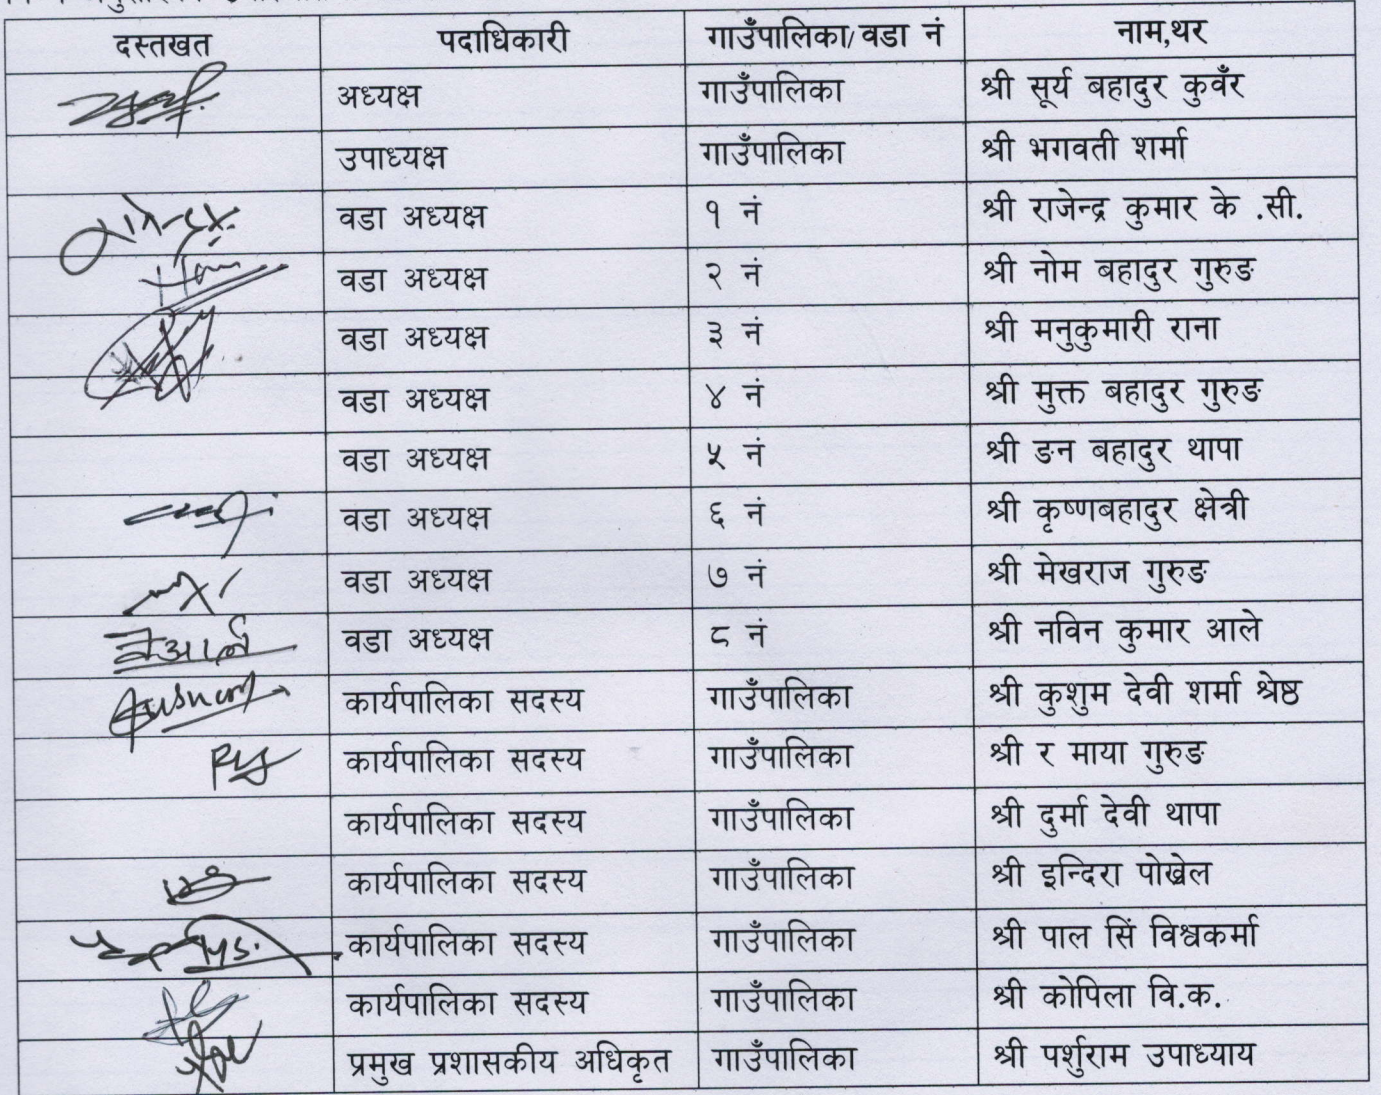 दस्तखत पदाधिकारी गाउँपालिका/वडा नं नाम,थर
अध्यक्ष गाउँपालिका श्री सूर्य बहादुर कुवँर
उपाध्यक्ष गाउँपालिका श्री भगवती शर्मा
वडा अध्यक्ष १ नं श्री राजेन्द्र कुमार के .सी.
वडा अध्यक्ष २ नं श्री नोम बहादुर गुरुङ
वडा अध्यक्ष ३ नं श्री मनुकुमारी राना
वडा अध्यक्ष ४ नं श्री मुक्त बहादुर गुरुङ
वडा अध्यक्ष ५ नं श्री ङन बहादुर थापा
वडा अध्यक्ष ६ नं श्री कृष्णबहादुर क्षेत्री
वडा अध्यक्ष ७ नं श्री मेखराज गुरुङ
वडा अध्यक्ष ८ नं श्री नविन कुमार आले
कार्यपालिका सदस्य गाउँपालिका श्री कुशुम देवी शर्मा श्रेष्ठ
कार्यपालिका सदस्य गाउँपालिका श्री र माया गुरुङ
कार्यपालिका सदस्य गाउँपालिका श्री दुर्मा देवी थापा
कार्यपालिका सदस्य गाउँपालिका श्री इन्दिरा पोख्रेल
कार्यपालिका सदस्य गाउँपालिका श्री पाल सिं विश्वकर्मा
कार्यपालिका सदस्य गाउँपालिका श्री कोपिला वि.क.
प्रमुख प्रशासकीय अधिकृत गाउँपालिका श्री पर्शुराम उपाध्याय